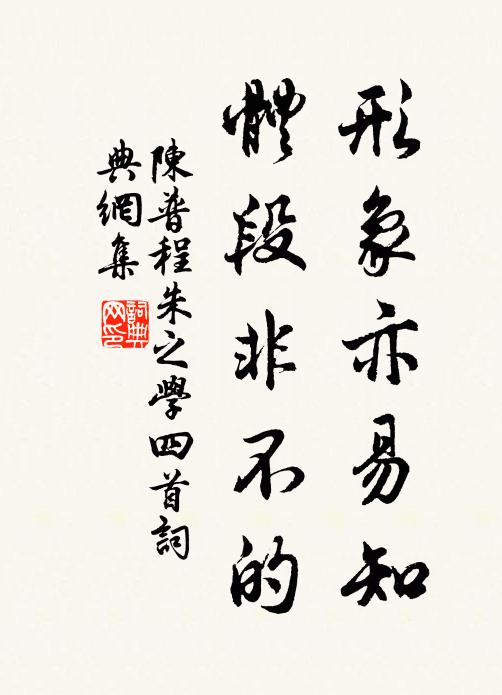 形象亦易知
體段非不的
陳普程朱之學四首詞
典網集
詞典網印